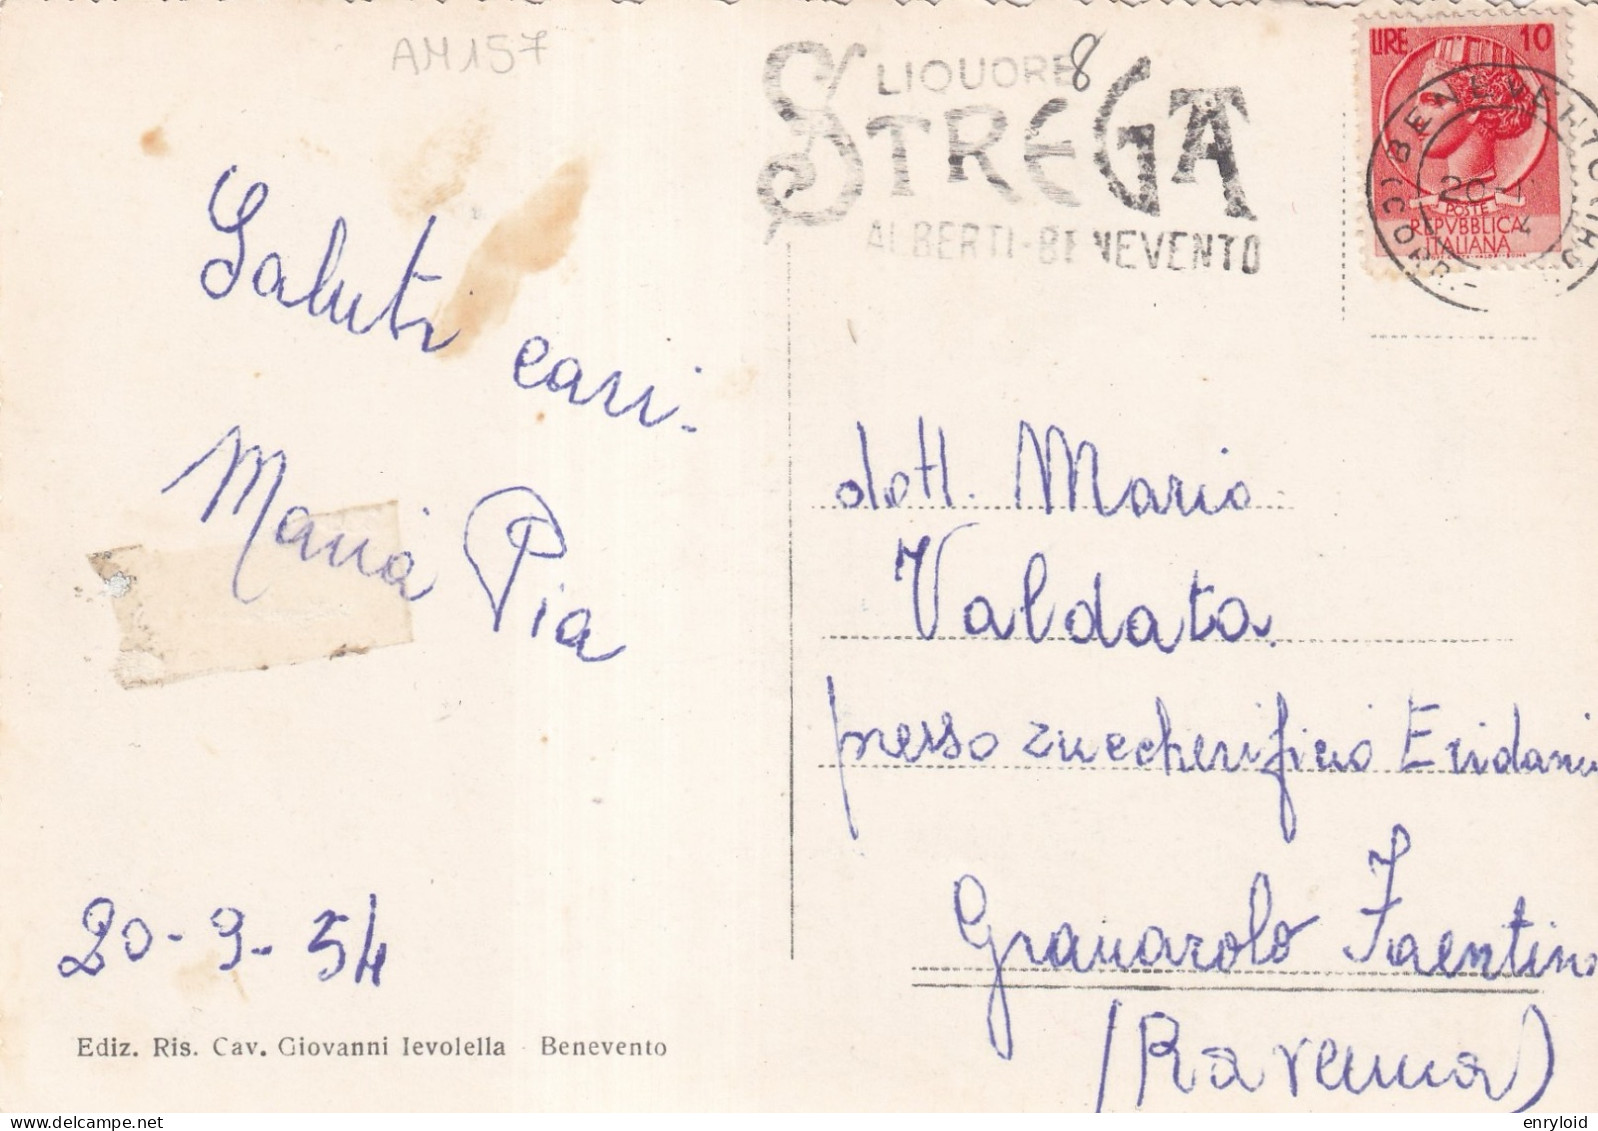 AM157
8
LIQUORE
STREGA
ALBERTI-BENEVENTO
LIRE 10
POSTE
REPVBBLICA
ITALIANA
BENEVENTO
20-
Saluti cari-
Maria Pia
20-9-54
Ediz. Ris. Cav. Giovanni Ievolella - Benevento
dott. Mario
Valdata
presso zuccherificio Eridania
Granarolo Faentino
(Ravenna)
enryloid